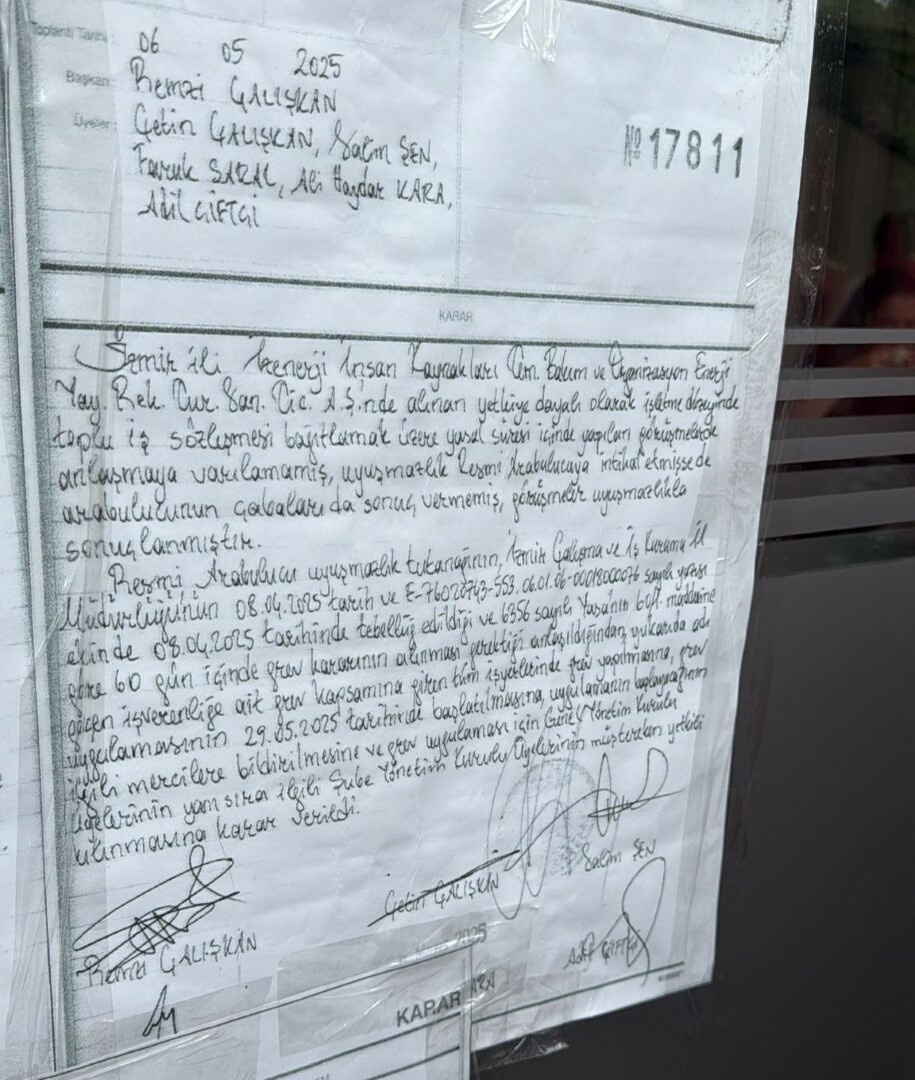 Toplantı Tarihi 06 05 2025
Başkan: Remzi ÇALIŞKAN
Üyeler: Çetin ÇALIŞKAN, Salim ŞEN,
Faruk SARAL, Ali Haydar KARA,
Adil ÇİFTÇİ
№ 17811
KARAR
İzmir İli İzenerji İnsan Kaynakları Tem. Bakım ve Organizasyon Enerji
Yay. Rek. Tur. San. Tic. A.Ş.nde alınan yetkiye dayalı olarak işletme düzeyinde
toplu iş sözleşmesi bağıtlamak üzere yasal süresi içinde yapılan görüşmelerde
anlaşmaya varılamamış, uyuşmazlık Resmi Arabulucuya intikal etmişse de
arabulucunun çabaları da sonuç vermemiş, görüşmeler uyuşmazlıkla
sonuçlanmıştır.
Resmi Arabulucu uyuşmazlık tutanağının, İzmir Çalışma ve İş Kurumu İl
Müdürlüğü'nün 08.04.2025 tarih ve sayılı yazısı
ekinde 08.04.2025 tarihinde tebellüğ edildiği ve 6356 sayılı Yasa'nın 60/1 maddesine
göre 60 gün içinde grev kararının alınması gerektiği anlaşıldığından, yukarıda adı
geçen işverenliğe ait grev kapsamına giren tüm işyerlerinde grev yapılmasına, grev
uygulamasının 29.05.2025 tarihinde başlatılmasına, uygulamanın başlayacağının
ilgili mercilere bildirilmesine ve grev uygulaması için Genel Yönetim Kurulu
Üyelerinin yanı sıra ilgili Şube Yönetim Kurulu Üyelerinin müştereken yetkili
kılınmasına karar verildi.
Çetin ÇALIŞKAN Salim ŞEN
Remzi ÇALIŞKAN Adil ÇİFTÇİ
2025
KARAR